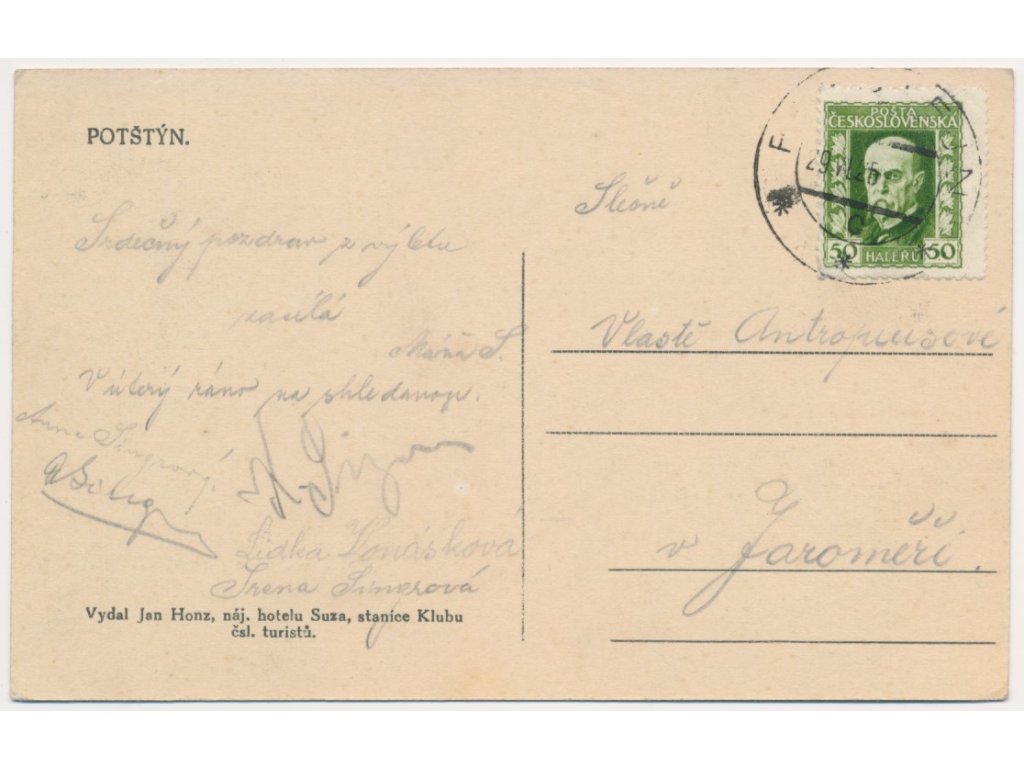 POTŠTÝN.
Srdečný pozdrav z výletu
zasílá
Máňa S.
V úterý ráno na shledanou.
Anna Singrová
Lidka
Irena Singrová
Vydal Jan Honz, náj. hotelu Suza, stanice Klubu
čsl. turistů.
POŠTA
ČESKOSLOVENSKÁ
50 HALÉŘŮ 50
C
Slečně
Vlastě
v Jaroměři.